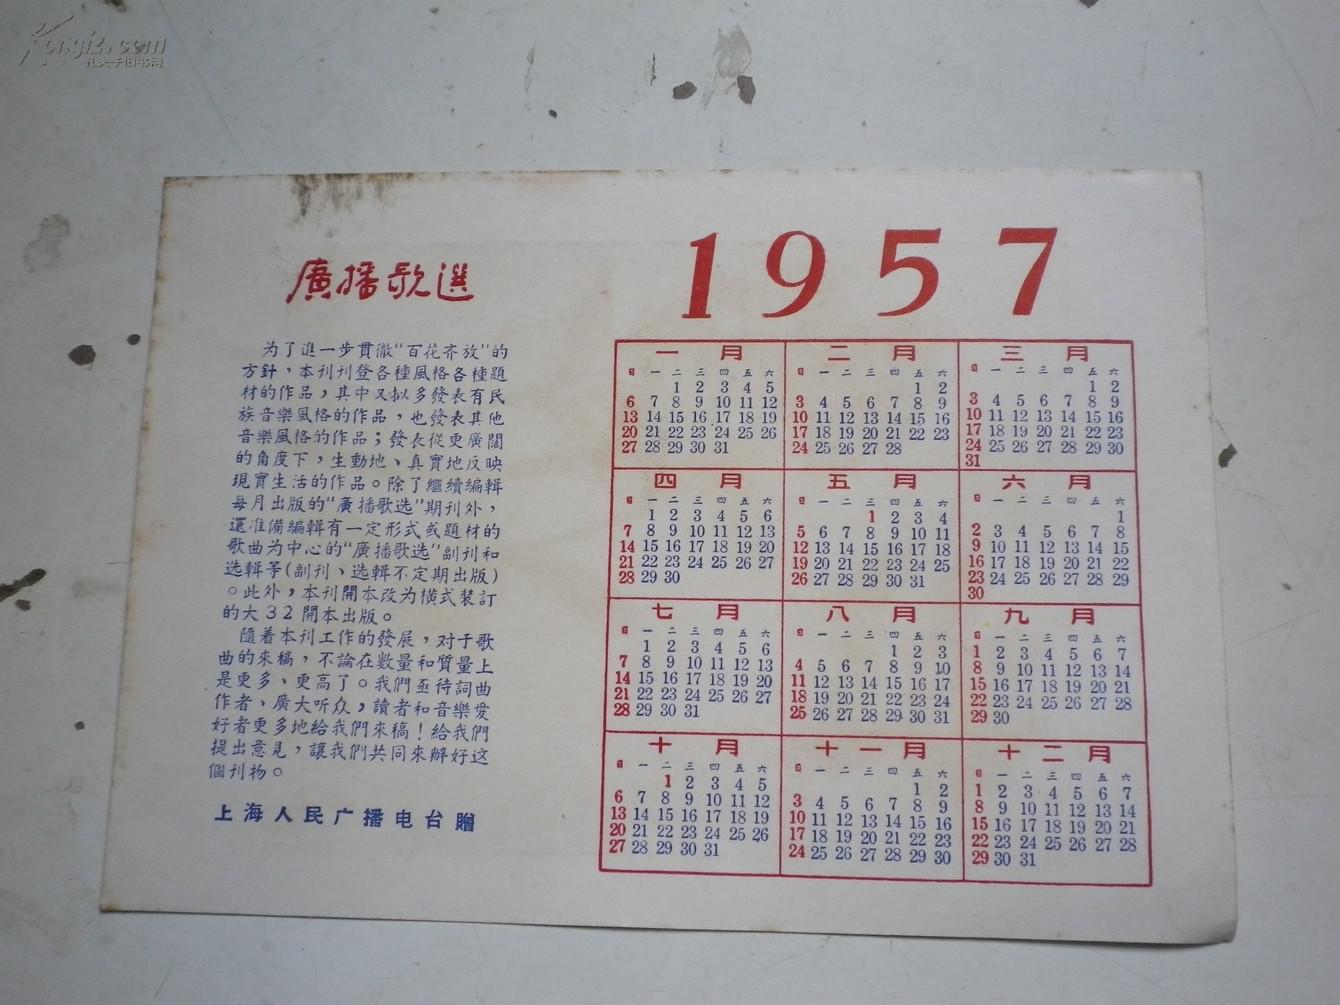 Kongfz.com
孔夫子旧书网
廣播歌選
为了進一步貫徹"百花齐放"的
方針，本刊刊登各種風格各種題
材的作品，其中又拟多發表有民
族音樂風格的作品，也發表其他
音樂風格的作品；發表從更廣闊
的角度下，生動地、真實地反映
現實生活的作品。除了繼續編輯
每月出版的"廣播歌选"期刊外，
還准備編輯有一定形式或題材的
歌曲为中心的"廣播歌选"副刊和
选輯等(副刊、选輯不定期出版)
。此外，本刊開本改为橫式裝訂
的大32開本出版。
隨着本刊工作的發展，对于歌
曲的來稿，不論在數量和質量上
是更多、更高了。我們亟待詞曲
作者、廣大听众，讀者和音樂愛
好者更多地給我們來稿！給我們
提出意見，讓我們共同來辦好这
個刊物。
上海人民广播电台贈
1957
一月
日 一 二 三 四 五 六
1 2 3 4 5
6 7 8 9 10 11 12
13 14 15 16 17 18 19
20 21 22 23 24 25 26
27 28 29 30 31
二月
日 一 二 三 四 五 六
1 2
3 4 5 6 7 8 9
10 11 12 13 14 15 16
17 18 19 20 21 22 23
24 25 26 27 28
三月
日 一 二 三 四 五 六
1 2
3 4 5 6 7 8 9
10 11 12 13 14 15 16
17 18 19 20 21 22 23
24 25 26 27 28 29 30
31
四月
日 一 二 三 四 五 六
1 2 3 4 5 6
7 8 9 10 11 12 13
14 15 16 17 18 19 20
21 22 23 24 25 26 27
28 29 30
五月
日 一 二 三 四 五 六
1 2 3 4
5 6 7 8 9 10 11
12 13 14 15 16 17 18
19 20 21 22 23 24 25
26 27 28 29 30 31
六月
日 一 二 三 四 五 六
1
2 3 4 5 6 7 8
9 10 11 12 13 14 15
16 17 18 19 20 21 22
23 24 25 26 27 28 29
30
七月
日 一 二 三 四 五 六
1 2 3 4 5 6
7 8 9 10 11 12 13
14 15 16 17 18 19 20
21 22 23 24 25 26 27
28 29 30 31
八月
日 一 二 三 四 五 六
1 2 3
4 5 6 7 8 9 10
11 12 13 14 15 16 17
18 19 20 21 22 23 24
25 26 27 28 29 30 31
九月
日 一 二 三 四 五 六
1 2 3 4 5 6 7
8 9 10 11 12 13 14
15 16 17 18 19 20 21
22 23 24 25 26 27 28
29 30
十月
日 一 二 三 四 五 六
1 2 3 4 5
6 7 8 9 10 11 12
13 14 15 16 17 18 19
20 21 22 23 24 25 26
27 28 29 30 31
十一月
日 一 二 三 四 五 六
1 2
3 4 5 6 7 8 9
10 11 12 13 14 15 16
17 18 19 20 21 22 23
24 25 26 27 28 29 30
十二月
日 一 二 三 四 五 六
1 2 3 4 5 6 7
8 9 10 11 12 13 14
15 16 17 18 19 20 21
22 23 24 25 26 27 28
29 30 31